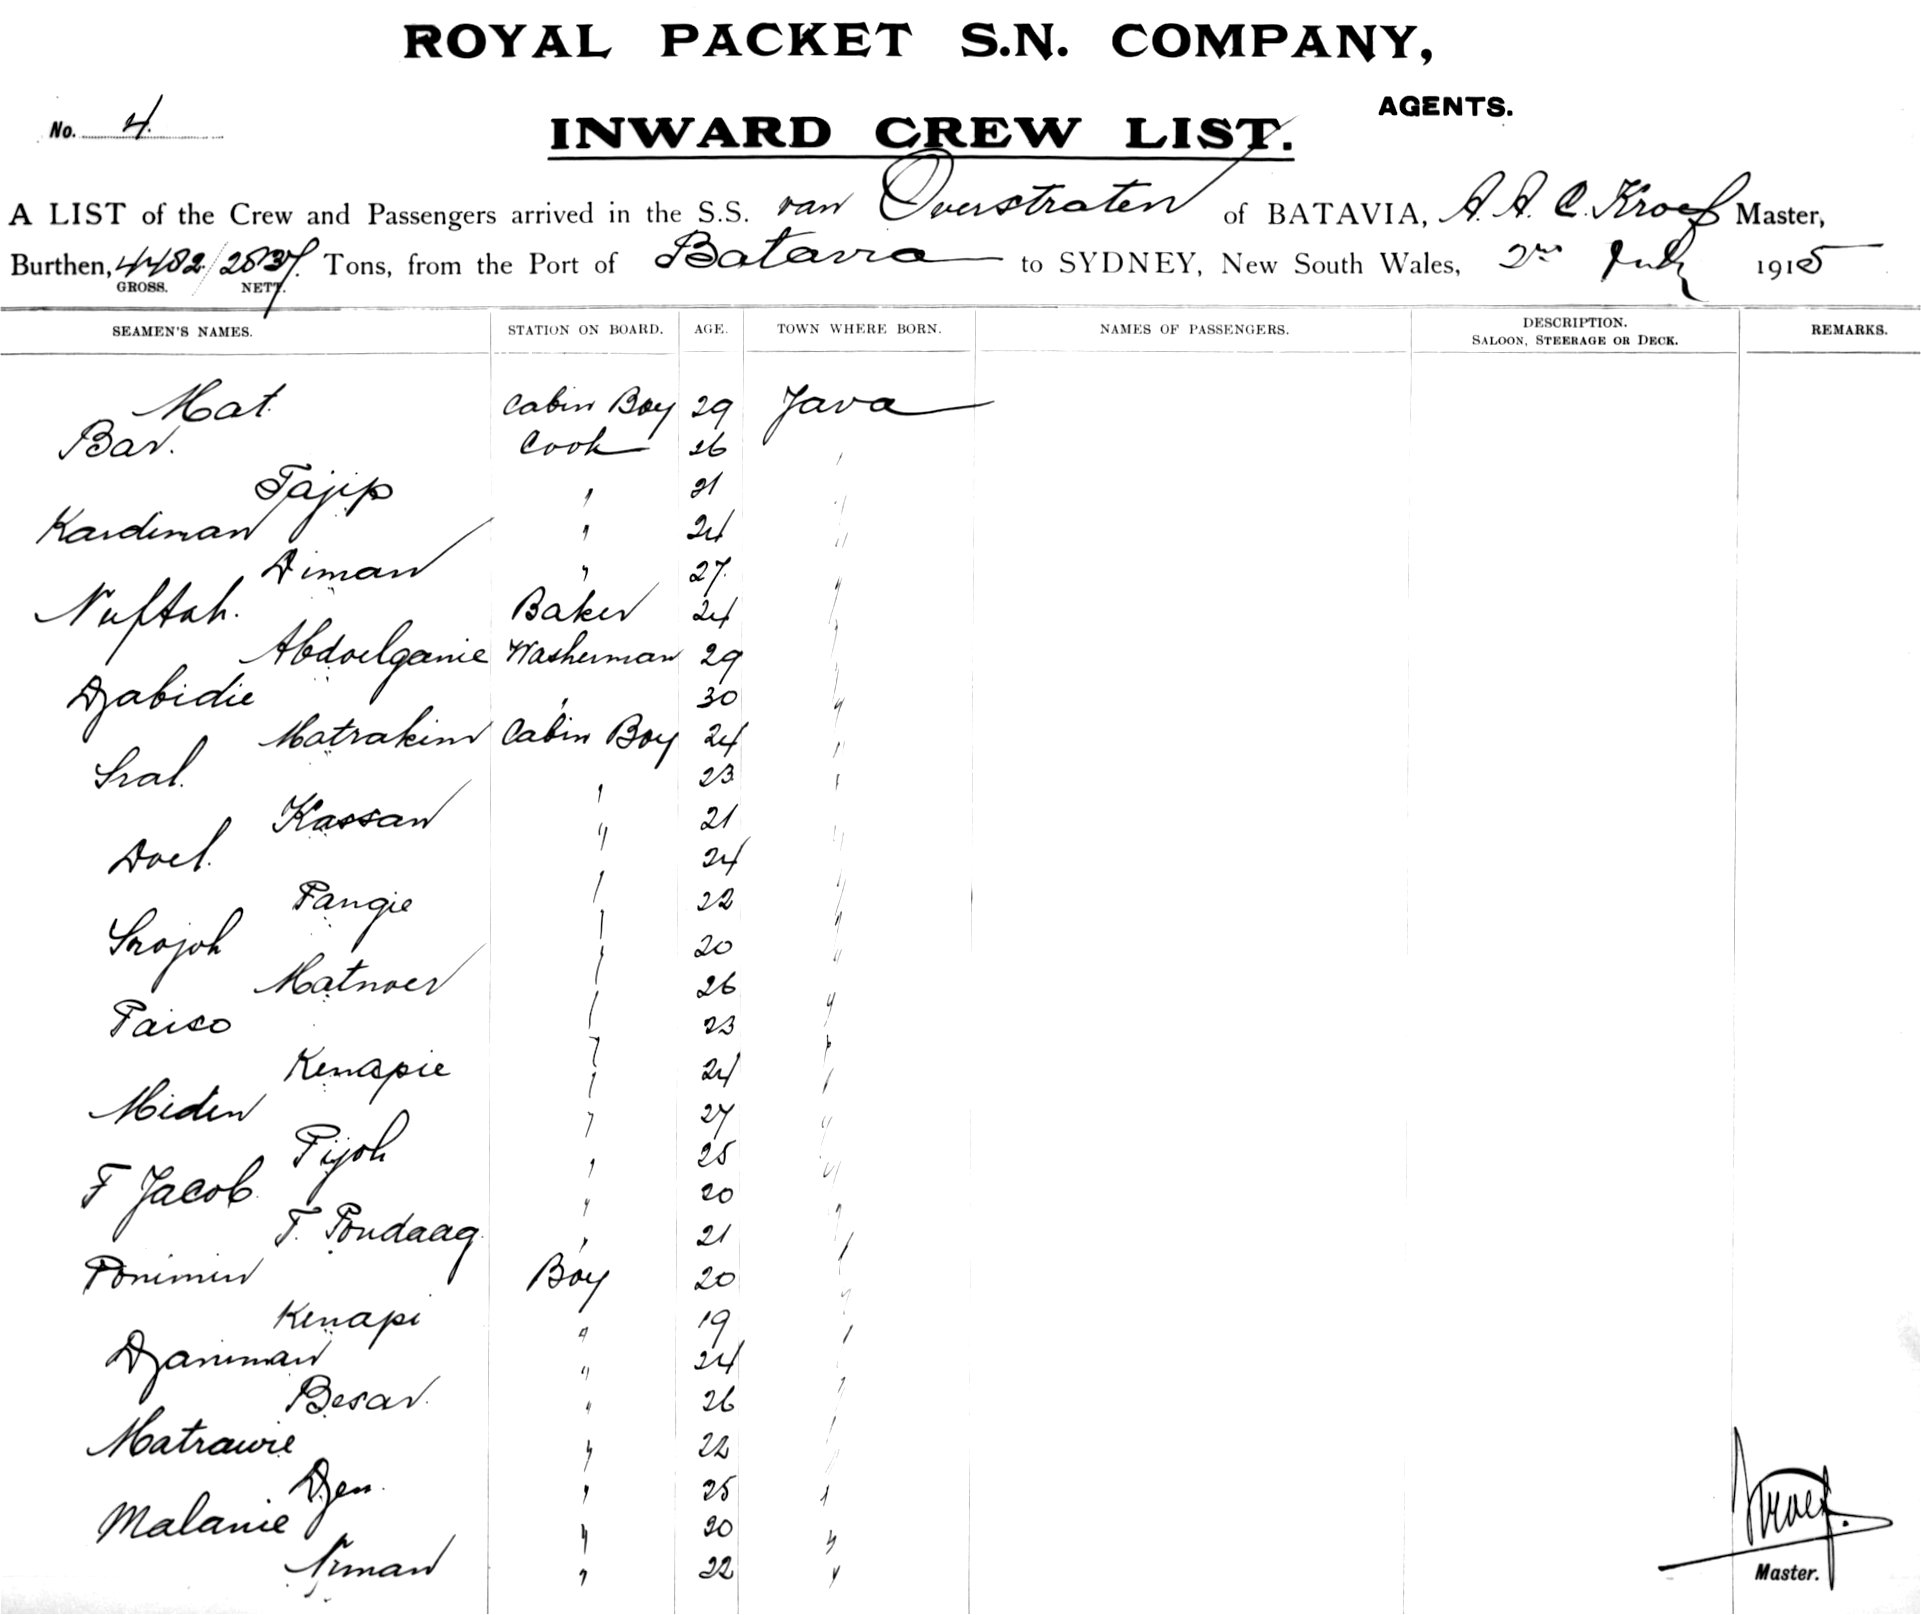 ROYAL PACKET S.N. COMPANY,
AGENTS.
No. 4.
INWARD CREW LIST.
A LIST of the Crew and Passengers arrived in the S.S. van Overstraten of BATAVIA, A. A. C. Kroef Master,
Burthen, 4482/2537. Tons, from the Port of Batavia to SYDNEY, New South Wales, 2nd July 1915
GROSS. NETT.
SEAMEN'S NAMES. STATION ON BOARD. AGE. TOWN WHERE BORN. NAMES OF PASSENGERS. DESCRIPTION. SALOON, STEERAGE OR DECK. REMARKS.
Mat. Cabin Boy 29 Java
Bar. Cook 26 "
Tajip " 21 "
Kardiman " 24 "
Diman " 27. "
Nuftah. Baker 24 "
Abdoelganie Washerman 29 "
Djabidie " 30 "
Matrakim Cabin Boy 24 "
Sral. " 23 "
Kassan " 21 "
Doel. " 24 "
Pangie " 22 "
Srojoh " 20 "
Matnoer " 26 "
Paiso " 23 "
Kenapie " 24 "
Miden " 27 "
Pijoh " 25 "
F Jacob. " 20 "
T. Pondaag. " 21 "
Ponimin Boy 20 "
Kenapi " 19 "
Djaniman " 24 "
Besar. " 26 "
Matrawie " 22 "
Djen. " 25 "
Malanie " 20 "
Niman " 22 "
Kroef.
Master.